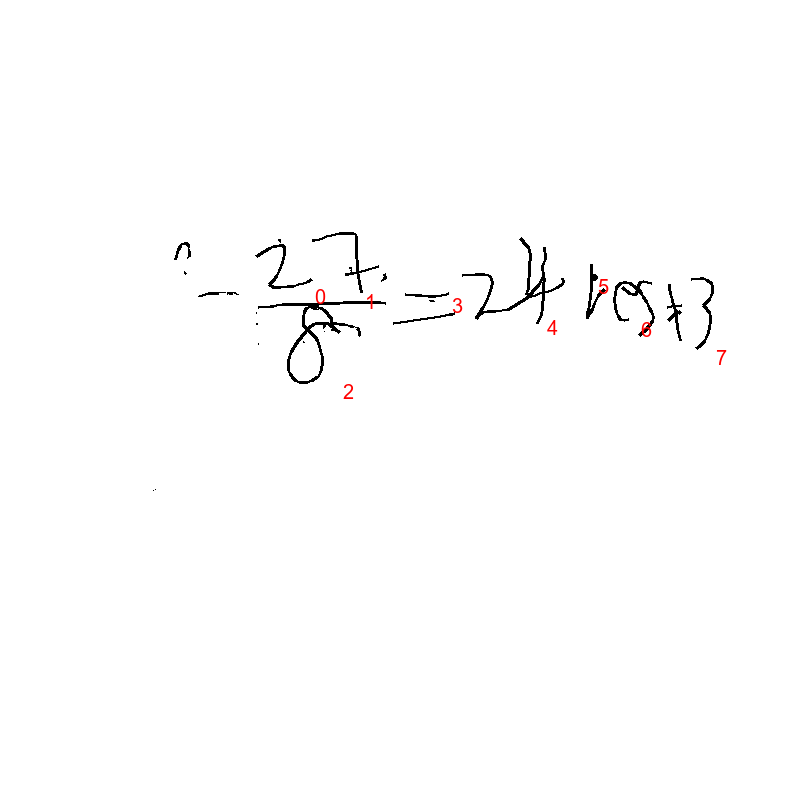 - 27/8 = 24 res + 3
0 1 2 3 4 5 6 7